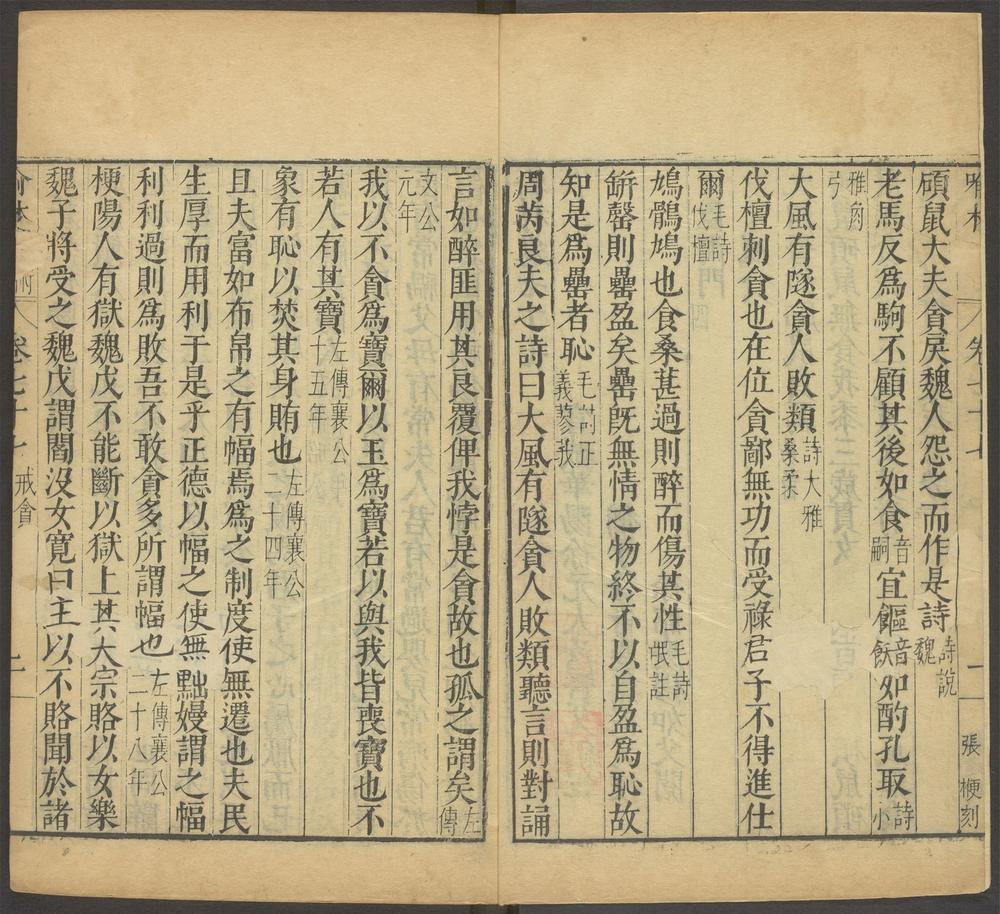 喻林 卷七十七 一 張梗刻
碩鼠大夫貪戾魏人怨之而作是詩詩說魏
老馬反為駒不顧其後如食音嗣宜饇音飫如酌孔取詩小
雅角弓
大風有隧貪人敗類詩大雅桑柔
伐檀刺貪也在位貪鄙無功而受祿君子不得進仕
爾毛詩伐檀
鳩鶻鳩也食桑葚過則醉而傷其性毛詩氓註
缾罄則罍盈矣罍旣無情之物終不以自盈為恥故
知是為罍者恥毛詩正義蓼莪
周芮良夫之詩曰大風有隧貪人敗類聽言則對誦
言如醉匪用其良覆俾我悖是貪故也孤之謂矣左傳
文公元年
我以不貪為寶爾以玉為寶若以與我皆喪寶也不
若人有其寶左傳襄公十五年
象有恥以焚其身賄也左傳襄公二十四年
且夫富如布帛之有幅焉為之制度使無遷也夫民
生厚而用利于是乎正德以幅之使無黜嫚謂之幅
利利過則為敗吾不敢貪多所謂幅也左傳襄公二十八年
梗陽人有獄魏戊不能斷以獄上其大宗賂以女樂
魏子將受之魏戊謂閻沒女寬曰主以不賂聞於諸
卷七十七 戒貪